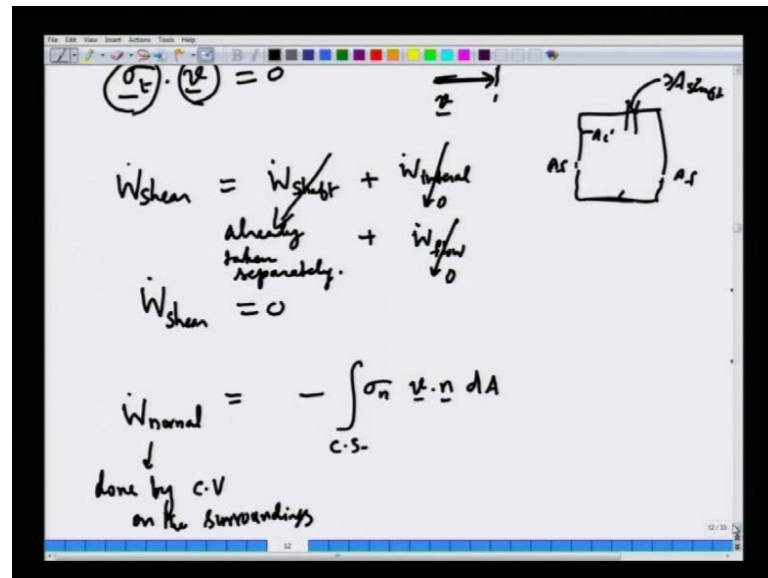 File Edit View Insert Actions Tools Help
σ_t · v = 0
v
∂A shaft
A_i
A_f A_f
Ẇ_shear = Ẇ_shaft + Ẇ_internal → 0
already taken separately.
+ Ẇ_flow → 0
Ẇ_shear = 0
Ẇ_normal = - ∫ σ_n v · n dA
C.S.
done by C.V
on the surroundings
12/33
12